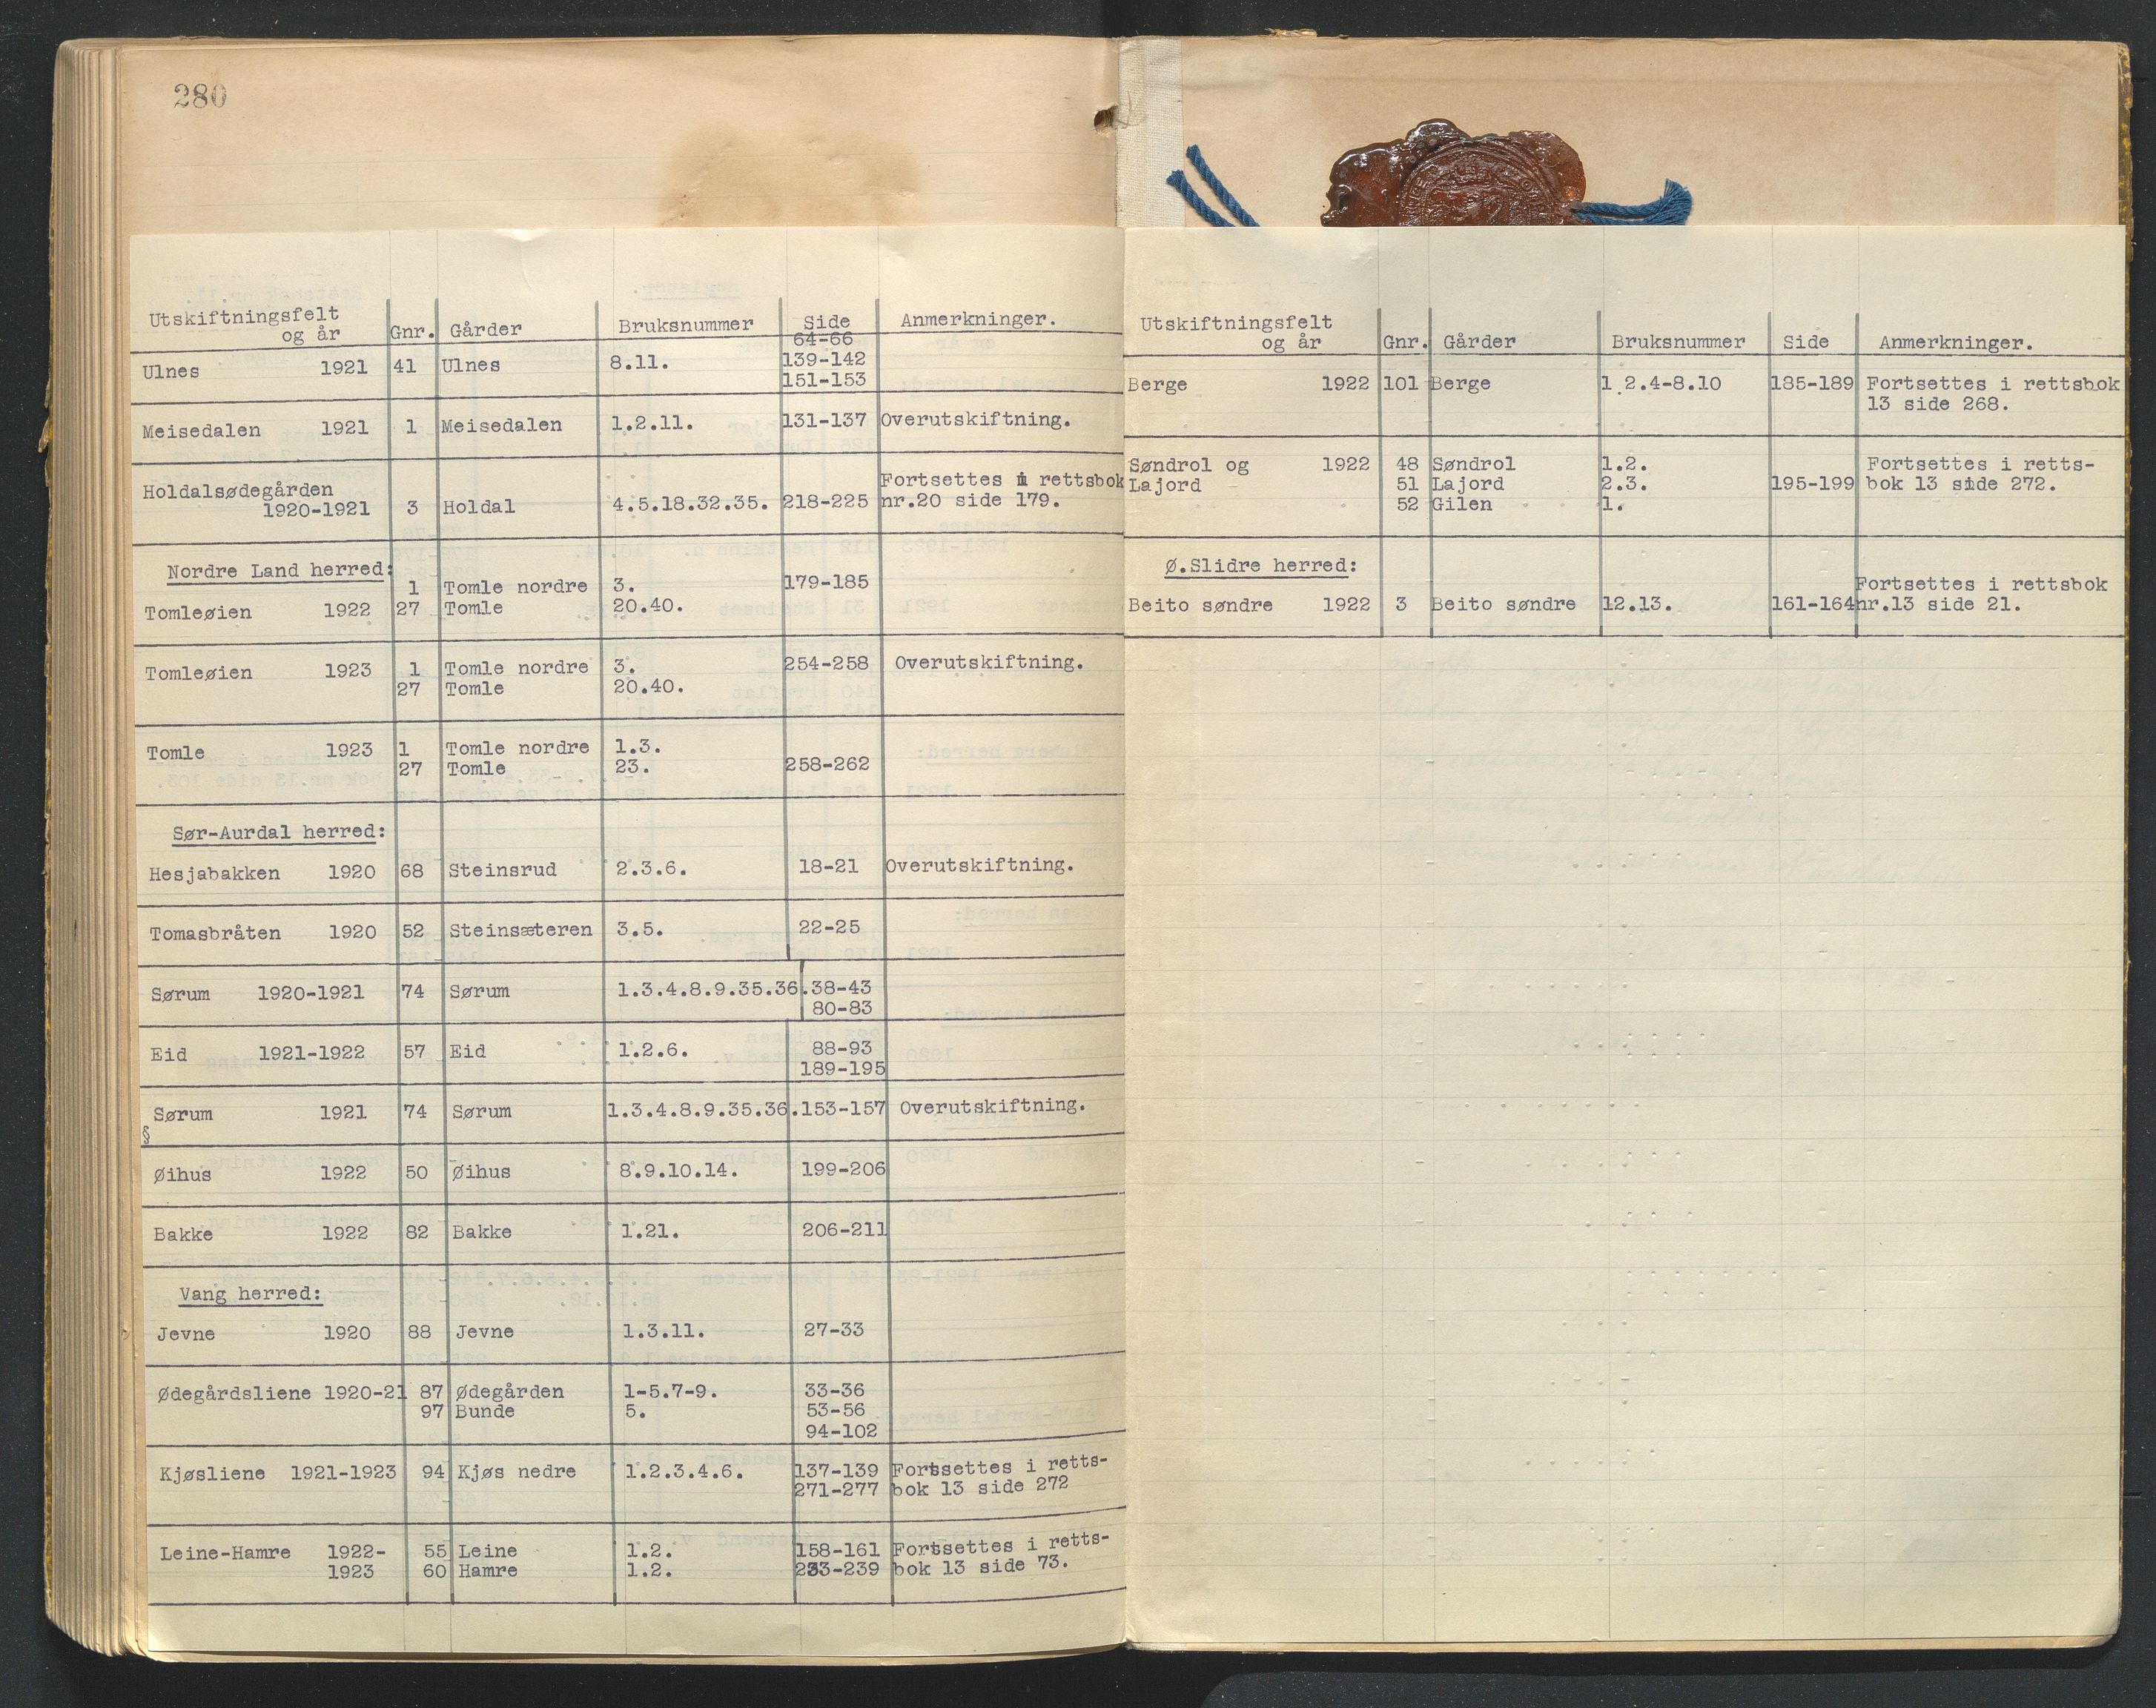 280
Utskiftningsfelt
og år Gnr. Gårder Bruksnummer Side Anmerkninger.
64-66
Ulnes 1921 41 Ulnes 8.11. 139-142
151-153
Meisedalen 1921 1 Meisedalen 1.2.11. 131-137 Overutskiftning.
Fortsettes i rettsbok
Holdalsødegården
1920-1921 3 Holdal 4.5.18.32.35. 218-225 nr.20 side 179.
Nordre Land herred:
1 Tomle nordre 3. 179-185
Tomleøien 1922 27 Tomle 20.40.
Tomleøien 1923 1 Tomle nordre 3. 254-258 Overutskiftning.
27 Tomle 20.40.
Tomle 1923 1 Tomle nordre 1.3.
27 Tomle 23. 258-262
Sør-Aurdal herred:
Hesjabakken 1920 68 Steinsrud 2.3.6. 18-21 Overutskiftning.
Tomasbråten 1920 52 Steinsæteren 3.5. 22-25
Sørum 1920-1921 74 Sørum 1.3.4.8.9.35.36.38-43
80-83
Eid 1921-1922 57 Eid 1.2.6. 88-93
189-195
Sørum 1921 74 Sørum 1.3.4.8.9.35.36.153-157 Overutskiftning.
§
Øihus 1922 50 Øihus 8.9.10.14. 199-206
Bakke 1922 82 Bakke 1.21. 206-211
Vang herred:
Jevne 1920 88 Jevne 1.3.11. 27-33
Ødegårdsliene 1920-21 87 Ødegården 1-5.7-9. 33-36
97 Bunde 5. 53-56
94-102
Kjøsliene 1921-1923 94 Kjøs nedre 1.2.3.4.6. 137-139 Fortsettes i retts-
271-277 bok 13 side 272
Leine-Hamre 1922- 55 Leine 1.2. 158-161 Fortsettes i retts-
1923 60 Hamre 1.2. 233-239 bok 13 side 73.
Utskiftningsfelt
og år Gnr. Gårder Bruksnummer Side Anmerkninger.
Berge 1922 101 Berge 1.2.4-8.10 185-189 Fortsettes i rettsbok
13 side 268.
Søndrol og 1922 48 Søndrol 1.2. Fortsettes i retts-
Lajord 51 Lajord 2.3. 195-199 bok 13 side 272.
52 Gilen 1.
Ø.Slidre herred:
Fortsettes i rettsbok
Beito søndre 1922 3 Beito søndre 12.13. 161-164 nr.13 side 21.